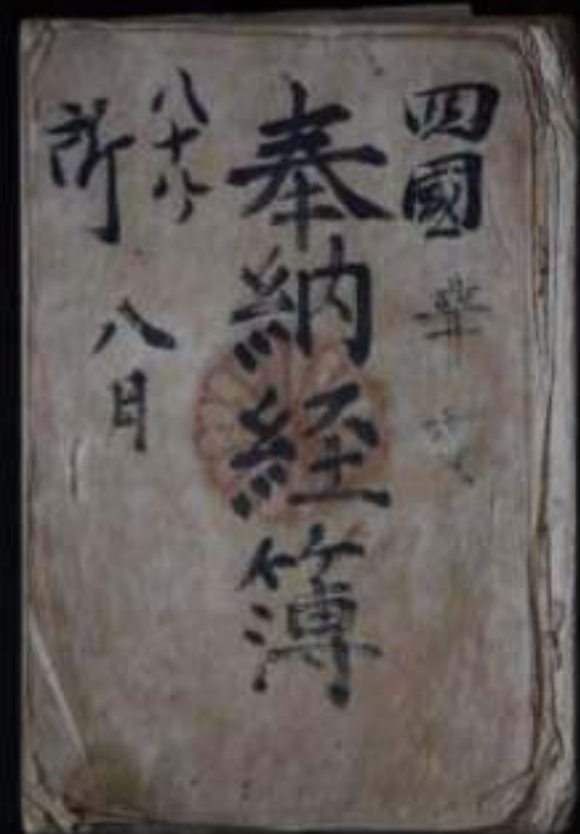 四國
奉納経簿
八十八
所
八月